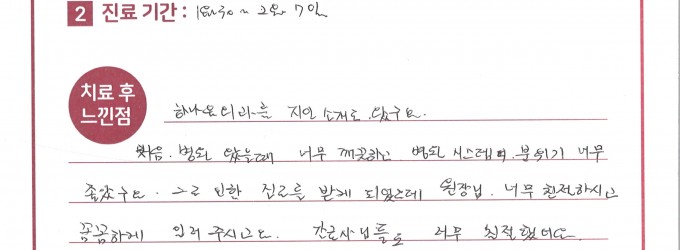 2 진료 기간 : 1월30~2월 7일
치료 후
느낀점
하나로의과를 지인 소개로 왔구요.
처음. 병원 왔을때 너무 깨끗하고. 병원 시스템며. 분위기 너무
좋았구요. 그로 인한 진료를 받게 되었는데 원장님. 너무 친절하시고
꼼꼼하게 일러 주시고요. 간호사님들도 너무 친절했어요.